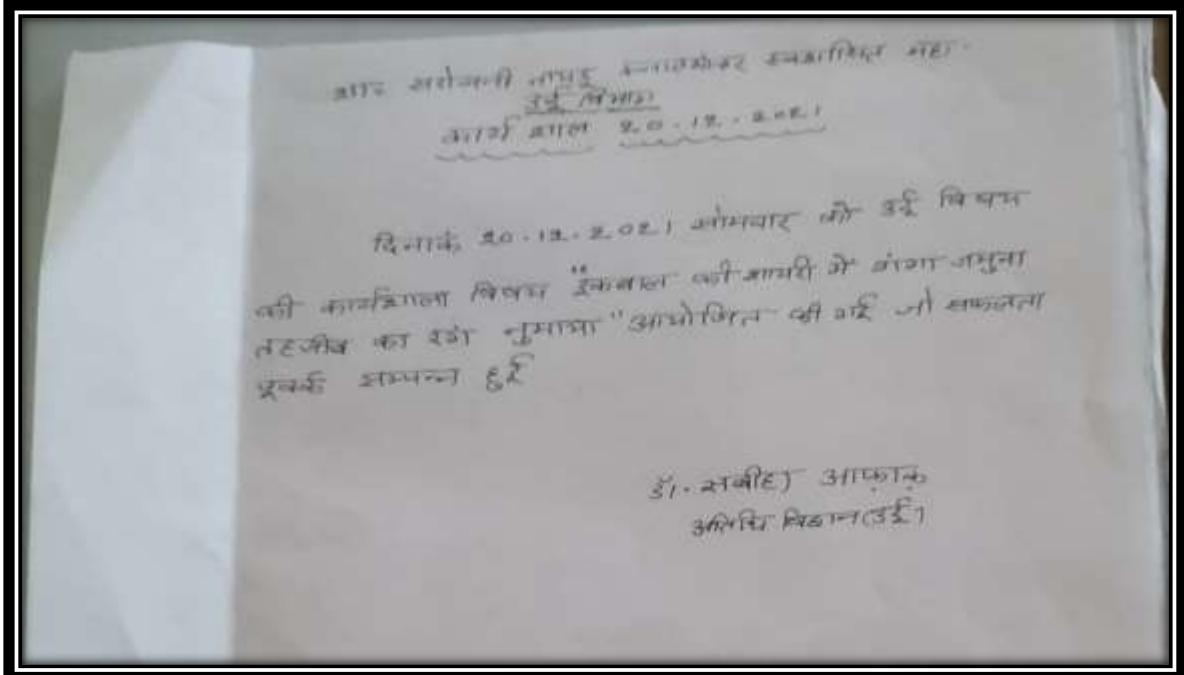 शास सरोजनी नायडू स्नातकोत्तर स्वशासित महा.
उर्दू विभाग
कार्य शाल 20.12.2021
दिनाकं 20.12.2021 सोमवार को उर्दू विषय
की कार्यशाला विषय "इकबाल की शायरी में गंगा जमुना
तहजीब का रंग नुमाया" आयोजित की गई जो सफलता
पूवर्क सम्पन्न हुई
डॉ. सबीहा आफ़ाक़
अतिथि विद्वान (उर्दू)